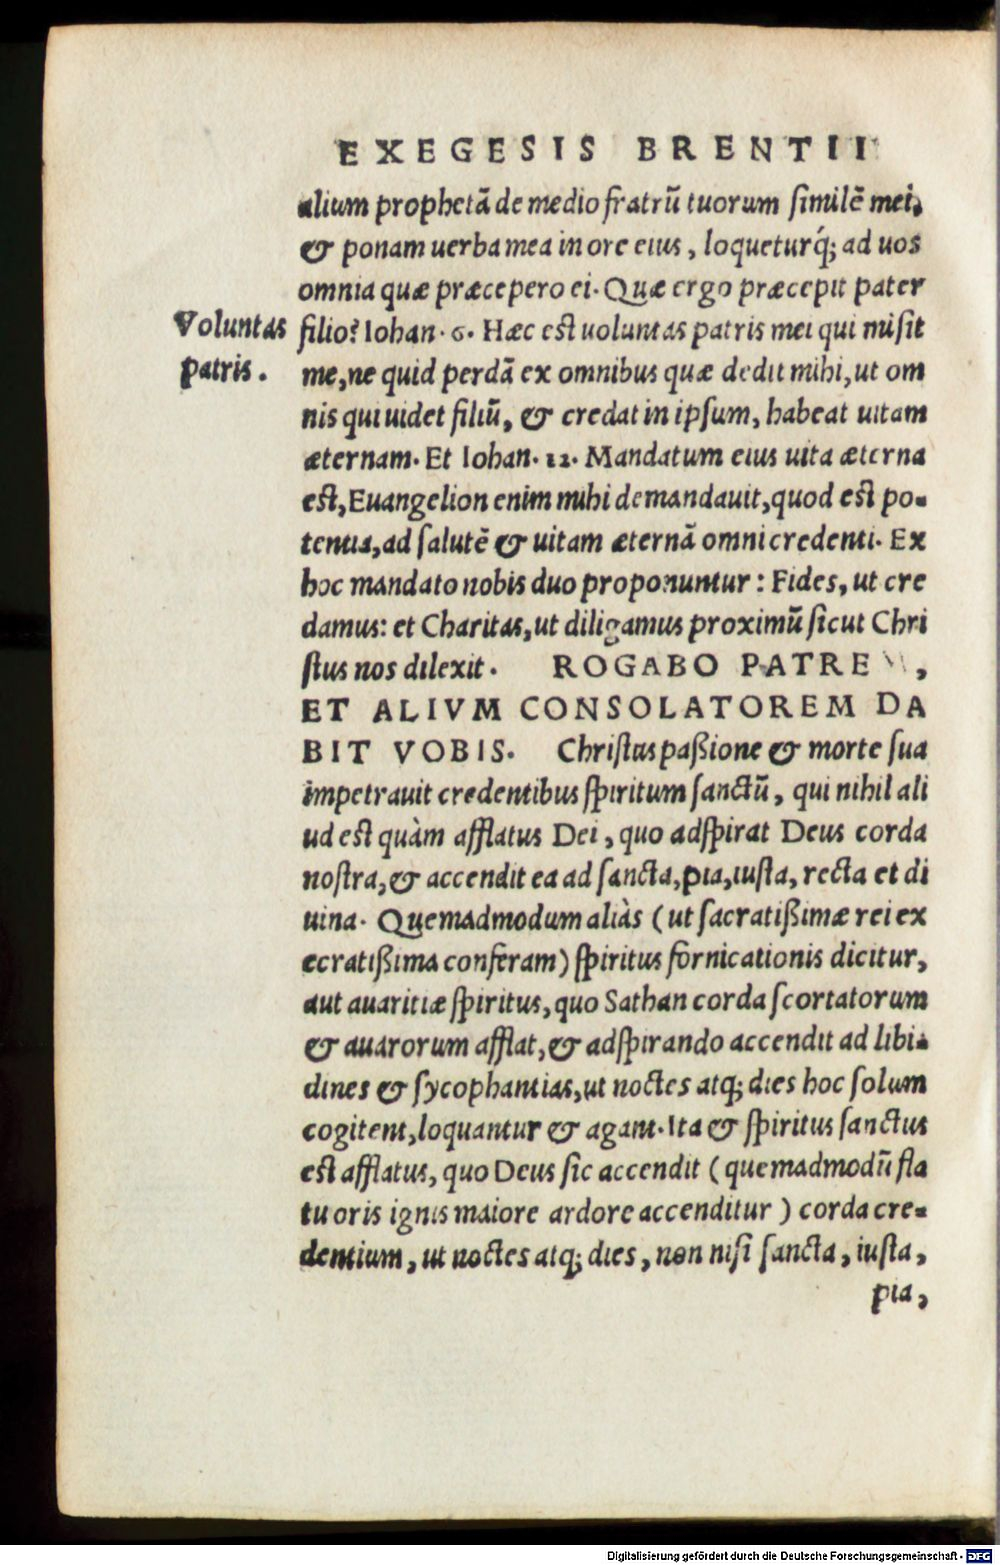 EXEGESIS BRENTII
alium prophetã de medio fratrũ tuorum ſimilẽ mei,
& ponam uerba mea in ore eius, loqueturq́; ad uos
omnia quæ præcepero ei. Quæ ergo præcepit pater
Voluntas patris.
filio? Iohan. 6. Hæc eſt uoluntas patris mei qui miſit
me, ne quid perdã ex omnibus quæ dedit mihi, ut om
nis qui uidet filiũ, & credat in ipſum, habeat uitam
æternam. Et Iohan. 12. Mandatum eius uita æterna
eſt, Euangelion enim mihi demandauit, quod eſt po-
tentia, ad ſalutẽ & uitam æternã omni credenti. Ex
hoc mandato nobis duo proponuntur: Fides, ut cre
damus: et Charitas, ut diligamus proximũ ſicut Chri
ſtus nos dilexit. ROGABO PATREM,
ET ALIVM CONSOLATOREM DA
BIT VOBIS. Chriſtus paßione & morte ſua
impetrauit credentibus ſpiritum ſanctũ, qui nihil ali
ud eſt quàm afflatus Dei, quo adſpirat Deus corda
noſtra, & accendit ea ad ſancta, pia, iuſta, recta et di
uina. Quemadmodum aliàs (ut ſacratißimæ rei ex
ecratißima conferam) ſpiritus fornicationis dicitur,
aut auaritiæ ſpiritus, quo Sathan corda ſcortatorum
& auarorum afflat, & adſpirando accendit ad libi-
dines & ſycophantias, ut noctes atq; dies hoc ſolum
cogitent, loquantur & agant. Ita & ſpiritus ſanctus
eſt afflatus, quo Deus ſic accendit (quemadmodũ fla
tu oris ignis maiore ardore accenditur) corda cre-
dentium, ut noctes atq; dies, non niſi ſancta, iuſta,
pia,
Digitalisierung gefördert durch die Deutsche Forschungsgemeinschaft - DFG